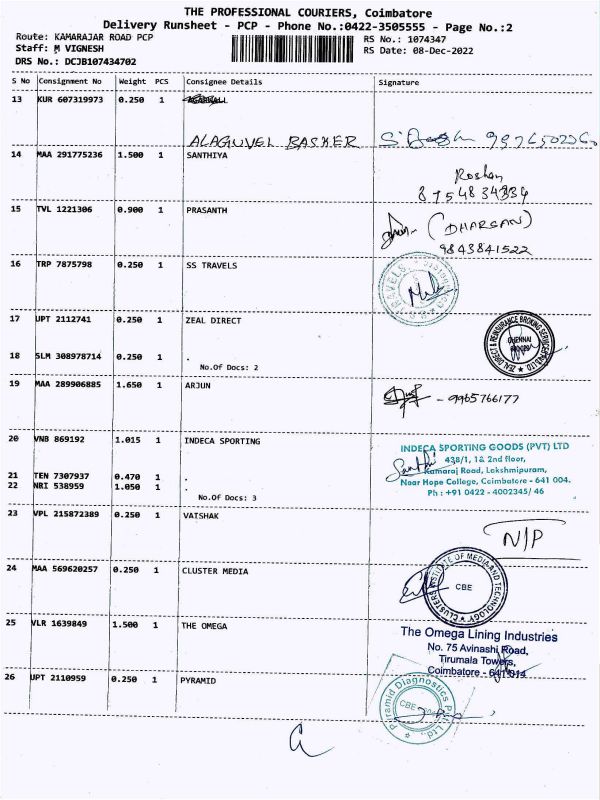 THE PROFESSIONAL COURIERS, Coimbatore
Delivery Runsheet - PCP - Phone No.:0422-3505555 - Page No.:2
Route: KAMARAJAR ROAD PCP RS No.: 1074347
Staff: M VIGNESH RS Date: 08-Dec-2022
DRS No.: DCJB107434702
S No Consignment No Weight PCS Consignee Details Signature
13 KUR 607319973 0.250 1
ALAGUVEL BASKER
14 MAA 291775236 1.500 1 SANTHIYA
Roshan
8754834334
15 TVL 1221306 0.900 1 PRASANTH
(DHARSAN)
9843841522
16 TRP 7875798 0.250 1 SS TRAVELS
TRAVELS
17 UPT 2112741 0.250 1 ZEAL DIRECT
ZEAL DIRECT & REINSURANCE BROKING SERVICES PVT LTD
CHENNAI
18 SLM 308978714 0.250 1 .
No.Of Docs: 2
19 MAA 289906885 1.650 1 ARJUN
- 9965766177
20 VNB 869192 1.015 1 INDECA SPORTING
INDECA SPORTING GOODS (PVT) LTD
438/1, 1& 2nd floor,
Kamaraj Road, Lakshmipuram,
Near Hope College, Coimbatore - 641 004.
Ph : +91 0422 - 4002345/ 46
21 TEN 7307937 0.470 1 .
22 NRI 538959 1.050 1 .
No.Of Docs: 3
23 VPL 215872389 0.250 1 VAISHAK
N/P
24 MAA 569620257 0.250 1 CLUSTER MEDIA
CLUSTER INSTITUTE OF MEDIA AND TECHNOLOGY
CBE
25 VLR 1639849 1.500 1 THE OMEGA
The Omega Lining Industries
No. 75 Avinashi Road,
Tirumala Towers,
Coimbatore - 641 014
26 UPT 2110959 0.250 1 PYRAMID
Pyramid Diagnostics Pvt. Ltd.,
CBE